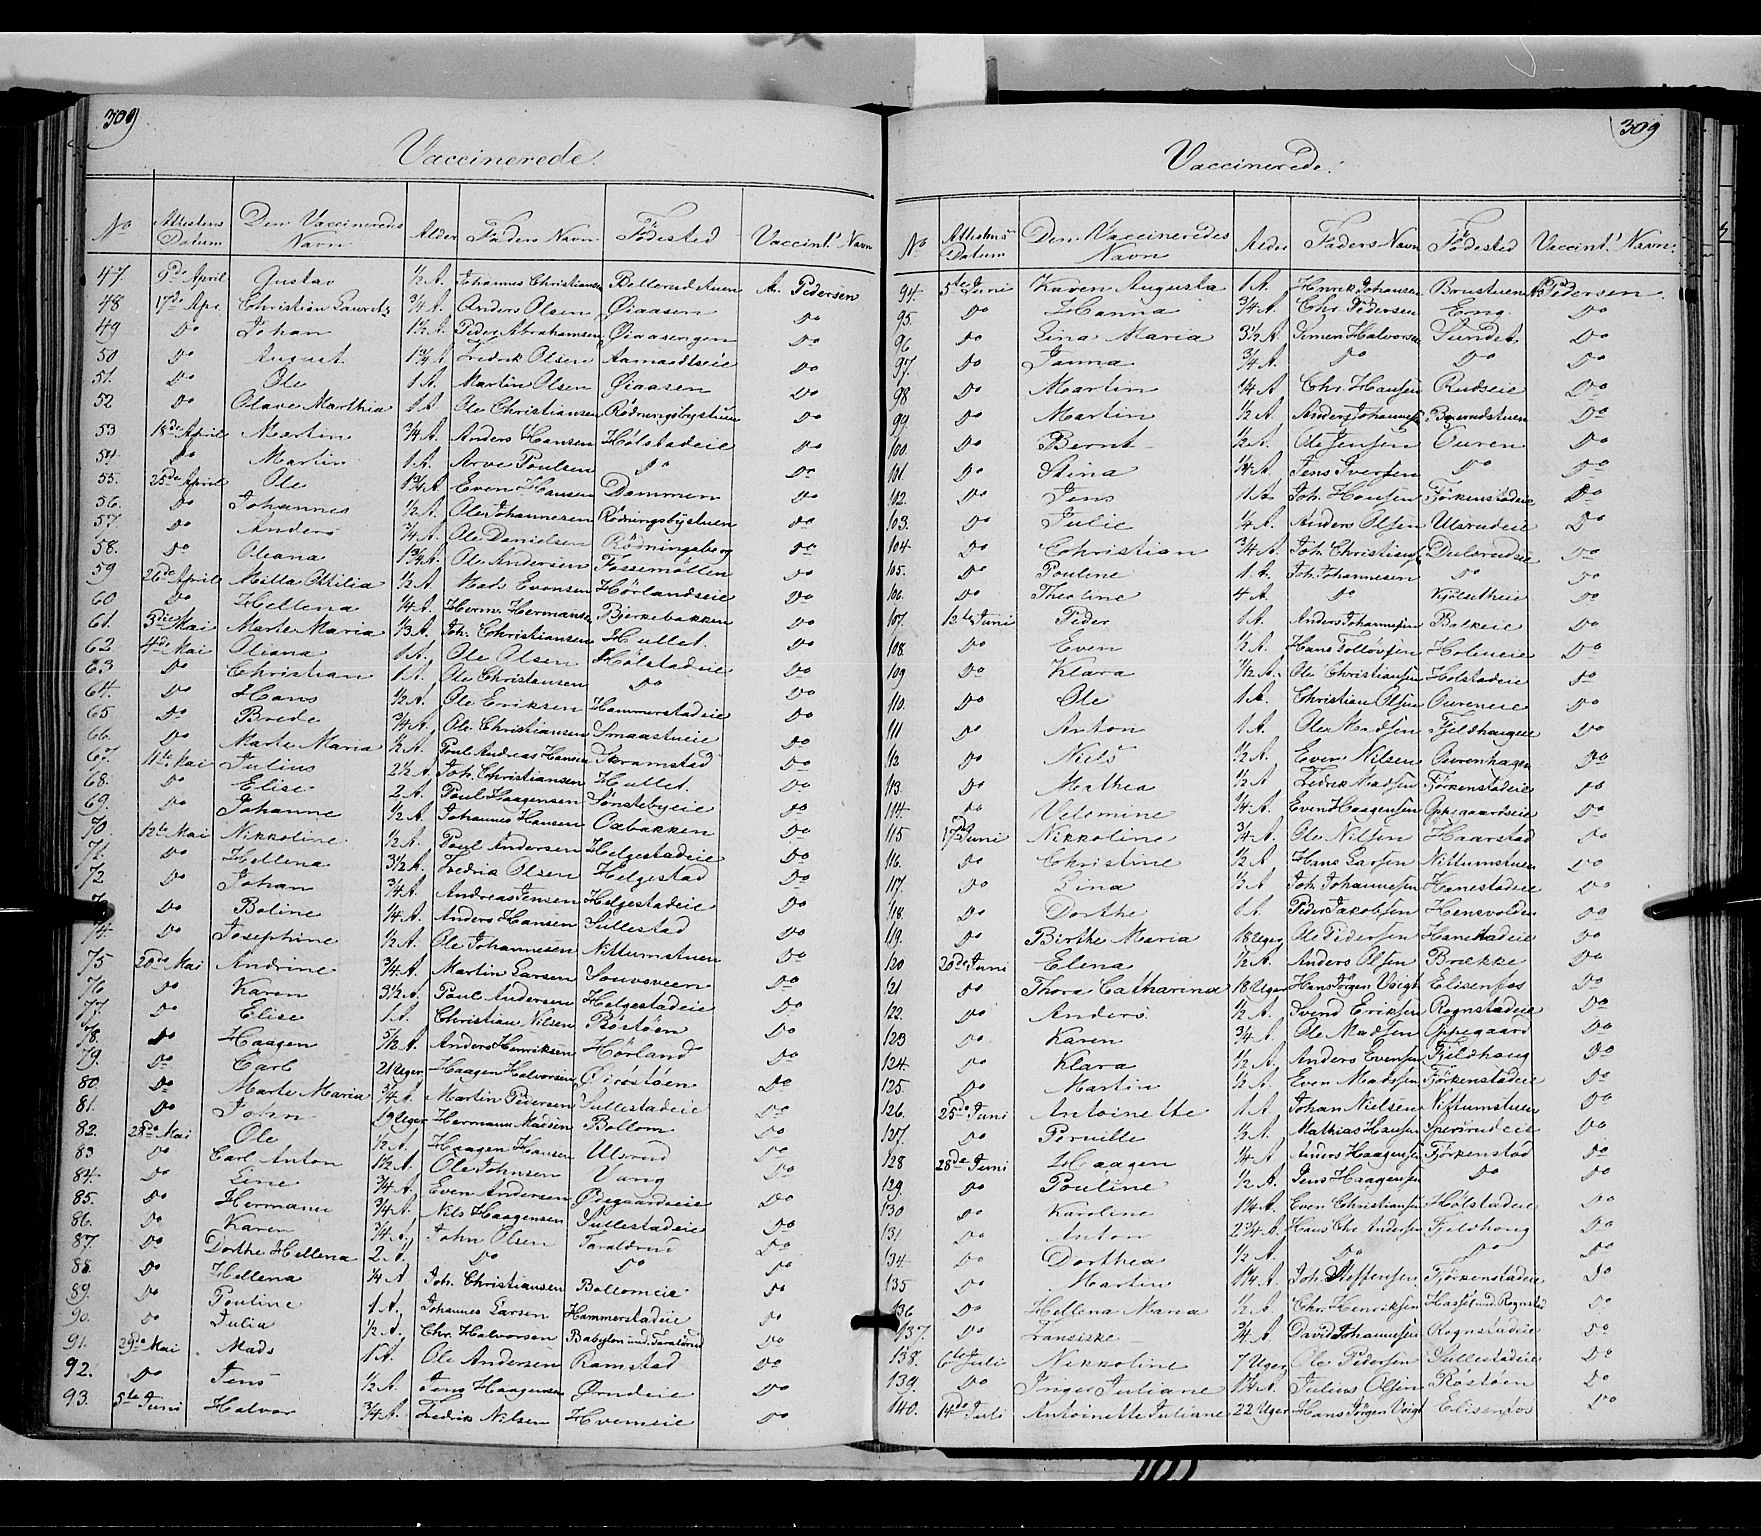 309
Vaccinerede.
No Attestens Datum Den Vaccineredes Navn Alder Faders Navn Fødested Vaccint.s Navn
47. 9de April Gustav ½ A. Johannes Christiansen Bollerudstuen A. Pedersen
48 17de Apr. Christian Laurits ¾ A. Anders Olsen Øiaasen Do
49 Do Johan 1½ A. Peder Abrahamsen Øiaasengen Do
50 Do August 1¾ A Fredrik Olsen Aamodtseie Do
51. Do Ole 1 A. Martin Olsen Øiaasen Do
52 Do Olave Marthia 1 A. Ole Christiansen Rødningsbystuen Do
53 18de April Martin ¾ A. Anders Hansen Hølstadeie Do
54 Do Martin 1 A. Arve Poulsen Do Do
55. 25de April Ole 1¾ A. Even Hansen Dammen Do
56. Do Johannes ½ A. Ole Johannesen Rødningsbystuen Do
57 Do Anders ¾ A. Ole Danielsen Rødningsberg Do
58. Do Oleana 1¾ A. Ole Andersen Fossemøllen Do
59 26de April Milla Ottilia ½ A Mads Evensen Hørlandseie Do
60 Do Hellena ¼ A. Herm. Hermansen Bjerkebakken Do
61. 3die Mai Marte Maria ⅓ A. Joh. Christiansen Hullet. Do
62. 4de Mai Oleana 1 A. Ole Olsen Hølstadeie Do
63 Do Christian 1 A. Ole Christiansen Do Do
64. Do Hans ½ A. Ole Eriksen Hammerstadeie Do
65 Do Brede ¾ A. Ole Christiansen Smaastueie Do
66. Do Marte Maria ½ A. Poul Andreas Hansen Skramstad Do
67. 11te Mai Julius 2½ A. Joh. Christiansen Hullet. Do
68. Do Elise 2 A. Poul Haagensen Sønstebyeie Do
69. Do Johanne ½ A. Johannes Hansen Oxbakken Do
70. 12te Mai Nikkoline ½ A. Poul Andersen Helgestadeie Do
71. Do Hellena 3½ A. Fredrik Olsen Helgestad Do
72 Do Johan ¾ A. Andreas Jensen Helgestadeie Do
Do Boline ¼ A. Anders Hansen Sullestad Do
74. Do Josephine ½ A. Ole Johannesen Nittumstuen Do
75 20de Mai Andrine ¾ A. Martin Larsen Do
76 Do Karen 3½ A. Poul Andersen Helgestadeie Do
77. Do Elise 1 A. Christian Nilsen Røstøen Do
78. Do Haagen 5/12 A. Anders Henriksen Hørland Do
79. Do Carl 21 Uger Haagen Halvorsen Øirøstøen Do
80 Do Marte Maria ¾ A. Martin Pedersen Sullestadeie Do
81. Do John 19 Uger Hermann Madsen Bollom Do
82. 28de Mai Ole ½ A. Haagen Hansen Ulsrud Do
83 Do Carl Anton 1½ A. Ole Johnsen Vang Do
84. Do Line ¾ A. Even Andersen Ødegaardseie
85. Do Hermann ¾ A. Nils Haagensen Sullestadeie Do
86. Do Karen ¾ A. John Olsen Taraldrud Do
87. Do Dorthe Hellena 2 A. Do Do Do
88. Do Hellena ¼ A Joh. Christiansen Bollomeie Do
89. Do Pouline 1 A. Johannes Larsen Hammerstadeie Do
90. Do Julia ½ A. Chr. Halvorsen Babylon und. Taralsrud Do
91. 29de Mai Mads 1 A. Ole Andersen Ramstad Do
92. Do Jens ½ A. Jens Haagensen Ørudeie Do
93. 5te Juni Halvor ¾ A. Fredrik Nilsen Hvemeie Do
309
Vaccinerede.
No Attestens Datum Den Vaccineredes Navn Alder Faders Navn Fødested Vaccint.s Navn
94. 5te Juni Karen Augusta 1 A. Henrik Johansen Brustuen A. Pedersen
95. Do Hanna ¾ A. Chr. Pedersen Eng. Do
96 Do Lina Maria 3½ A. Simen Halvorsen Sundet Do
97. Do Janna ¾ A. Do Do Do
98 Do Martin ¼ A Chr. Hansen Rudseie Do
99. Do Martin ½ A. Anders Johannesen Do
100. Do Bernt ½ A. Ole Jensen Ouren Do
101 Do Stina ¼ A. Jens Iversen Do Do
102. Do Jens 1 A. Joh. Hansen Fjørkenstadeie Do
103. Do Julie ¼ A. Anders Olsen Ulsrudeie Do
104 Do Christian ¾ A. Joh. Christians. Dulsrudseie Do
105. Do Pouline 1 A. Joh. Johannesen Do Do
106. Do Theoline 4 A. Do Do
107. 12te Juni Peder 1 A. Anders Johannesen Bolkeie Do
108. Do Even ½ A. Hans Tolløvsen Holmeie Do
109 Do Klara 7/12 A. Ole Christiansen Holstadeie Do
110. Do Ole 1 A. Christian Olsen Oureneie Do
111 Do Anton 1 A. Ole Madsen Fjeldhaugeie Do
112 Do Niels ½ A. Even Nilsen Ourenhagen Do
113. Do Mathea ½ A Fredrik Madsen Fjørkenstadeie Do
114. Do Velomine ¼ A. Even Haagensen Oppegaardseie Do
115 17de Juni Nikkoline ¾ A. Ole Nilsen Haarstad Do
116. Do Christine ½ A. Hans Larsen Nittumstuen Do
117. Do Lina ⅓ A Joh. Johannesen Hanestadeie Do
118. Do Dorthe 1 A. Peder Jakobsen Hensvolden Do
119. Do Birthe Maria 18 Uger Ole Pedersen Hanestadeie Do
120 20de Juni Elena ½ A. Anders Olsen Brække Do
121 Do Thora Catharina 18 Uger Hans Jörgen Voigt Elisenfos Do
122. Do Anders ½ A. Svend Eriksen Rognstadeie Do
123 Do Karen ¾ A. Ole Madsen Oppegaard Do
124. Do Klara ½ A. Anders Evensen Fjeldhoug Do
125. Do Martin ½ A. Even Madssen Fjørkenstadeie Do
126. 25de Juni Antoinette 1 A. Johan Nielsen Nittumstuen Do
127. Do Pernille ½ A. Mathias Hansen Sperrudeie Do
128 28de Juni Haagen ¼ A. Anders Haagensen Fjørkenstad Do
129. Do Pouline ½ A. Jens Haagensen Do Do
130 Do Karoline 1¼ A. Even Christiansen Hølstadeie Do
131. Do Anton 2¾ A. Hans Chr. Andersen Fjeldhoug Do
134. Do Dorthea ½ A. Do Do Do
135 Do Martin 1¼ A. Joh. Steffensen Fjørkenstadeie Do
136 Do Hellena Maria ½ A. Chr. Henriksen und. Rognstad Do
137. Do Fransiske ¾ A. David Johannesen Rognstadeie Do
138. 6te Juli Nikkoline 7 Uger Ole Pedersen Sullestadeie Do
139. Do Inger Juliane 1¼ A. Julius Olsen Røstøen Do
140. 14de Juli Antoinette Juliane 22 Uger Hans Jørgen Voigt Elisenfos Do